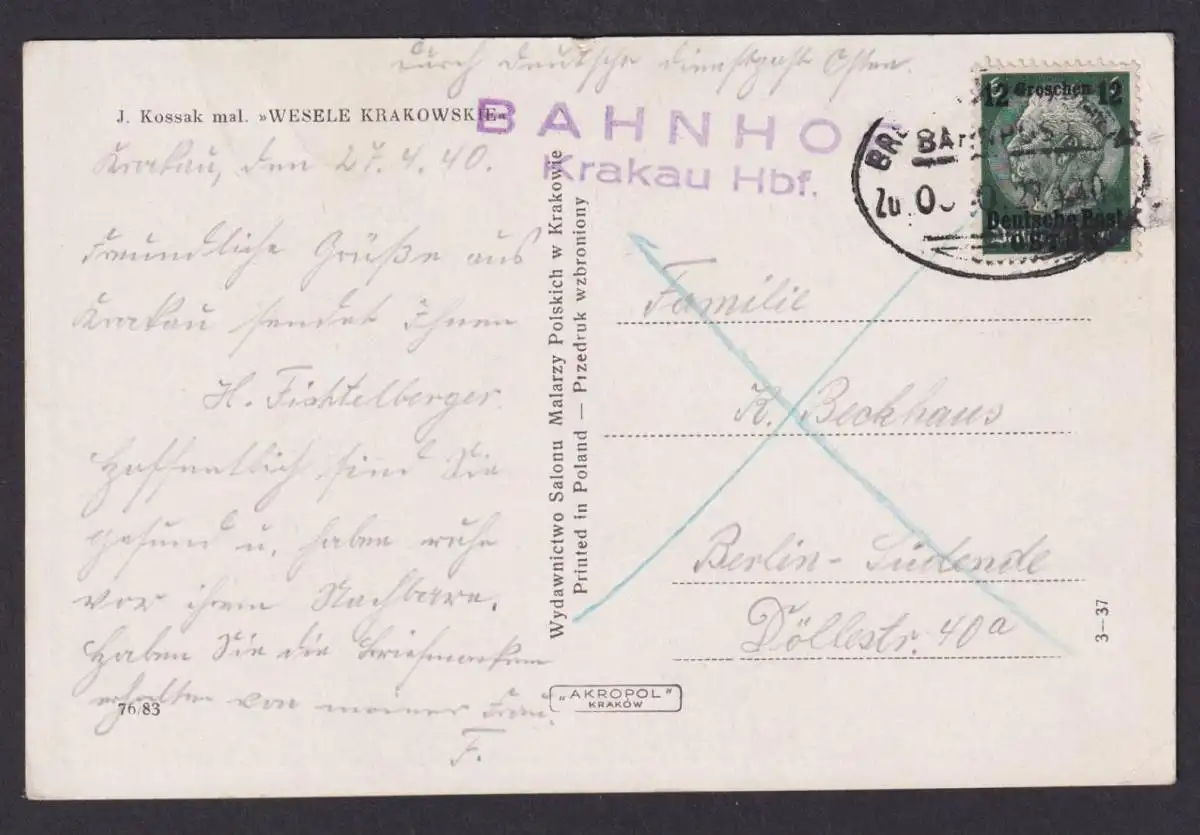 durch Deutsche Dienstpost Osten.
J. Kossak mal. »WESELE KRAKOWSKIE«
Krakau, den 27.4.40.
Freundliche Grüße aus
Krakau sendet Ihnen
H. Fichtelberger
Hoffentlich sind Sie
gesund u. haben ruhe
vor ihrem Nachbare.
Haben Sie die Briefmarken
erhalten von meiner Frau.
F.
76/83
Wydawnictwo Salonu Malarzy Polskich w Krakowie
Printed in Poland — Przedruk wzbroniony
"AKROPOL"
KRAKÓW
BAHNHO
Krakau Hbf.
BAHNPOST
Zu
27.4.40
12 Groschen 12
Deutsche Post
OSTEN
Familie
K. Beckhaus
Berlin-Südende
Döllestr. 40a
3—37